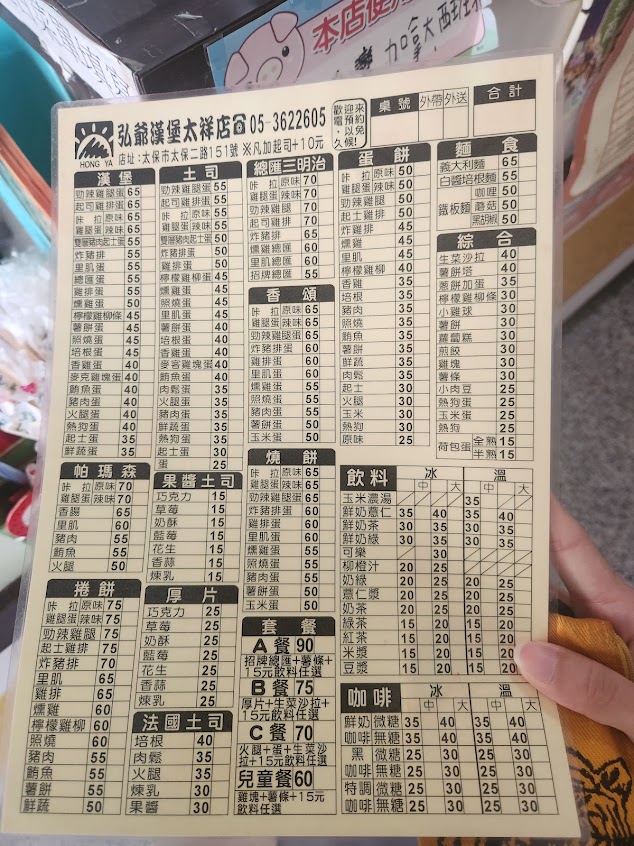 本店使用
加拿大西班牙
弘爺漢堡太祥店☎05-3622605
HONG YA
店址:太保市太保二路151號 ※凡加起司+10元
歡迎來電預約以免久候!
桌號 外帶 外送 合計
漢堡
勁辣雞腿蛋 65
起司雞腿蛋 65
咔拉 原味 65
雞腿蛋 辣味 65
雙層豬肉起士蛋 50
炸豬排 55
里肌蛋 55
總匯蛋 55
雞排蛋 55
燻雞蛋 50
檸檬雞柳條 45
薯餅蛋 45
照燒蛋 45
培根蛋 45
香雞蛋 40
麥克雞塊蛋 40
鮪魚蛋 40
豬肉蛋 40
火腿蛋 40
熱狗蛋 40
起士蛋 35
鮮蔬蛋 35
帕瑪森
咔拉 原味 70
雞腿蛋 辣味 70
香腸 65
里肌 60
豬肉 55
鮪魚 55
火腿 50
捲餅
咔拉 原味 75
雞腿蛋 辣味 75
勁辣雞腿 75
起士雞排 75
炸豬排 70
里肌 65
雞排 65
燻雞 60
檸檬雞柳 60
照燒 60
豬肉 55
鮪魚 55
薯餅 55
鮮蔬 50
土司
勁辣雞腿蛋 55
起司雞排蛋 55
咔拉 原味 55
雞腿蛋 辣味 55
雙層豬肉起士蛋 50
炸豬蛋 50
雞排蛋 50
檸檬雞柳蛋 45
燻雞蛋 45
照燒蛋 45
里肌蛋 45
薯餅蛋 40
培根蛋 40
香雞蛋 40
麥客雞塊蛋 40
鮪魚蛋 40
肉鬆蛋 35
火腿蛋 35
豬肉蛋 35
鮮蔬蛋 35
熱狗蛋 35
起士蛋 35
蛋 25
果醬土司
巧克力 15
草莓 15
奶酥 15
藍莓 15
花生 15
香蒜 15
煉乳 15
厚片
巧克力 25
草莓 25
奶酥 25
藍莓 25
花生 25
香蒜 25
煉乳 25
法國土司
培根 40
肉鬆 35
火腿 35
煉乳 30
果醬 30
總匯三明治
咔拉 原味 70
雞腿蛋 辣味 70
勁辣雞腿 70
起司雞 70
炸豬排 65
燻雞總匯 60
里肌總匯 60
招牌總匯 55
香頌
咔拉 原味 65
雞腿蛋 辣味 65
勁辣雞腿蛋 65
炸豬排蛋 60
雞排蛋 60
里肌蛋 60
燻雞蛋 55
照燒蛋 55
豬肉蛋 55
薯餅蛋 50
玉米蛋 50
燒餅
咔拉 原味 65
雞腿蛋 辣味 65
勁辣雞腿蛋 65
炸豬排蛋 60
雞排蛋 60
里肌蛋 60
燻雞蛋 55
照燒蛋 55
豬肉蛋 55
薯餅蛋 50
玉米蛋 50
套餐
A餐90
招牌總匯+薯條+15元飲料任選
B餐75
厚片+生菜沙拉+15元飲料任選
C餐70
火腿+蛋+生菜沙拉+15元飲料任選
兒童餐60
雞塊+薯條+15元飲料任選
蛋餅
咔拉 原味 50
雞腿蛋 辣味 50
勁辣雞腿 50
起士雞排 50
炸豬排 45
燻雞 45
里肌 45
檸檬雞柳 40
香雞 35
培根 35
豬肉 35
照燒 35
鮪魚 35
薯餅 35
鮮蔬 35
肉鬆 35
起士 30
火腿 30
玉米 30
原味 25
麵食
義大利麵 65
白醬培根麵 55
鐵板麵 咖哩 50
蘑菇 50
黑胡椒 50
綜合
生菜沙拉 40
薯餅塔 40
蔥餅加蛋 35
檸檬雞柳條 30
小雞球 30
薯餅 30
蘿蔔糕 30
煎餃 30
雞塊 30
薯條 30
小肉豆 25
熱狗蛋 25
玉米蛋 25
熱狗 25
荷包蛋 全熟 15
半熟 15
飲料 冰 溫
中 大 中 大
玉米濃湯 35
鮮奶薏仁 35 40 35
鮮奶茶 30 35 30 35
鮮奶綠 30 35 30 35
可樂 30
柳橙汁 20 25
奶綠 20 25 20 25
薏仁漿 20 25 20 25
奶茶 20 25 20 25
綠茶 15 20 15 20
紅茶 15 20 15 20
米漿 15 20 15 20
豆漿 15 20 15 20
咖啡 冰 溫
中 大 中 大
鮮奶 微糖 35 40 35 40
咖啡 無糖 35 40 35 40
黑 微糖 25 30 25 30
咖啡 無糖 25 30 25 30
特調 微糖 25 30 25 30
咖啡 無糖 25 30 25 30